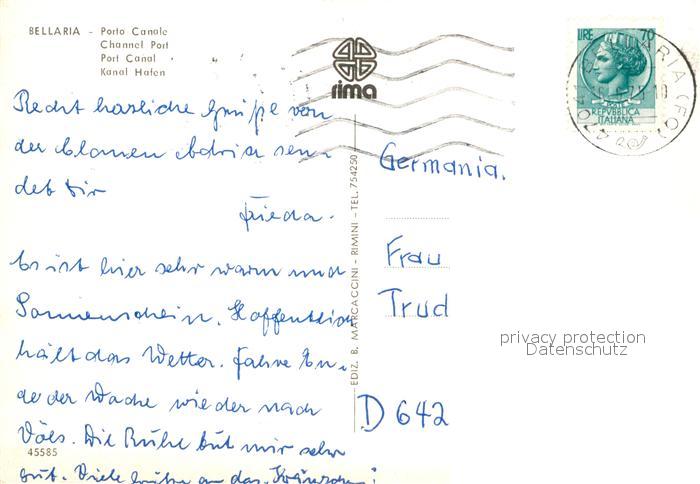 BELLARIA - Porto Canale
Channel Port
Port Canal
Kanal Hafen
rima
LIRE 70
REPVBBLICA
ITALIANA
Recht herzliche Grüße von
der blauen Adria sen-
det Dir
Frieda.
Es ist hier sehr warm und
Sonnenschein. Hoffentlich
hält das Wetter. Fahre En-
de der Woche wieder nach
Völs. Die Ruhe tut mir sehr
gut. Viele Grüße an das Kränzchen!
45585
EDIZ. B. MARCACCINI - RIMINI - TEL. 754250
Germania.
Frau
Trud
privacy protection
Datenschutz
D 642